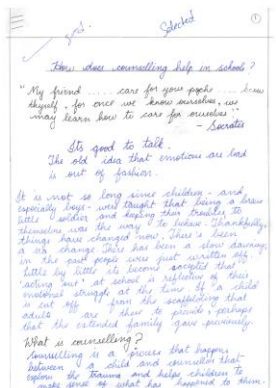 grd.
Selected
1
How does counselling help in schools?
"My friend ..... care for your psyche ..... know
thyself, for once we know ourselves, we
may learn how to care for ourselves"
- Socrates
Its good to talk.
The old idea that emotions are bad
is out of fashion.
It is not so long since children - and,
especially boys - were taught that being a brave
little soldier and keeping their troubles to
themselves was the way to behave. Thankfully,
things have changed now. There's been
a sea change. There has been a slow dawning
in the past people were just written off.
Little by little its become accepted that
'acting out' at school is reflective of their
emotional struggle at the time. If a child
is cut off from the scaffolding that
adults are there to provide, perhaps
that the extended family gave previously.
What is counselling?
Counselling is a process that happens
between a child and counsellor that
explores the trauma and helps children to
make sense of what has happened to them.